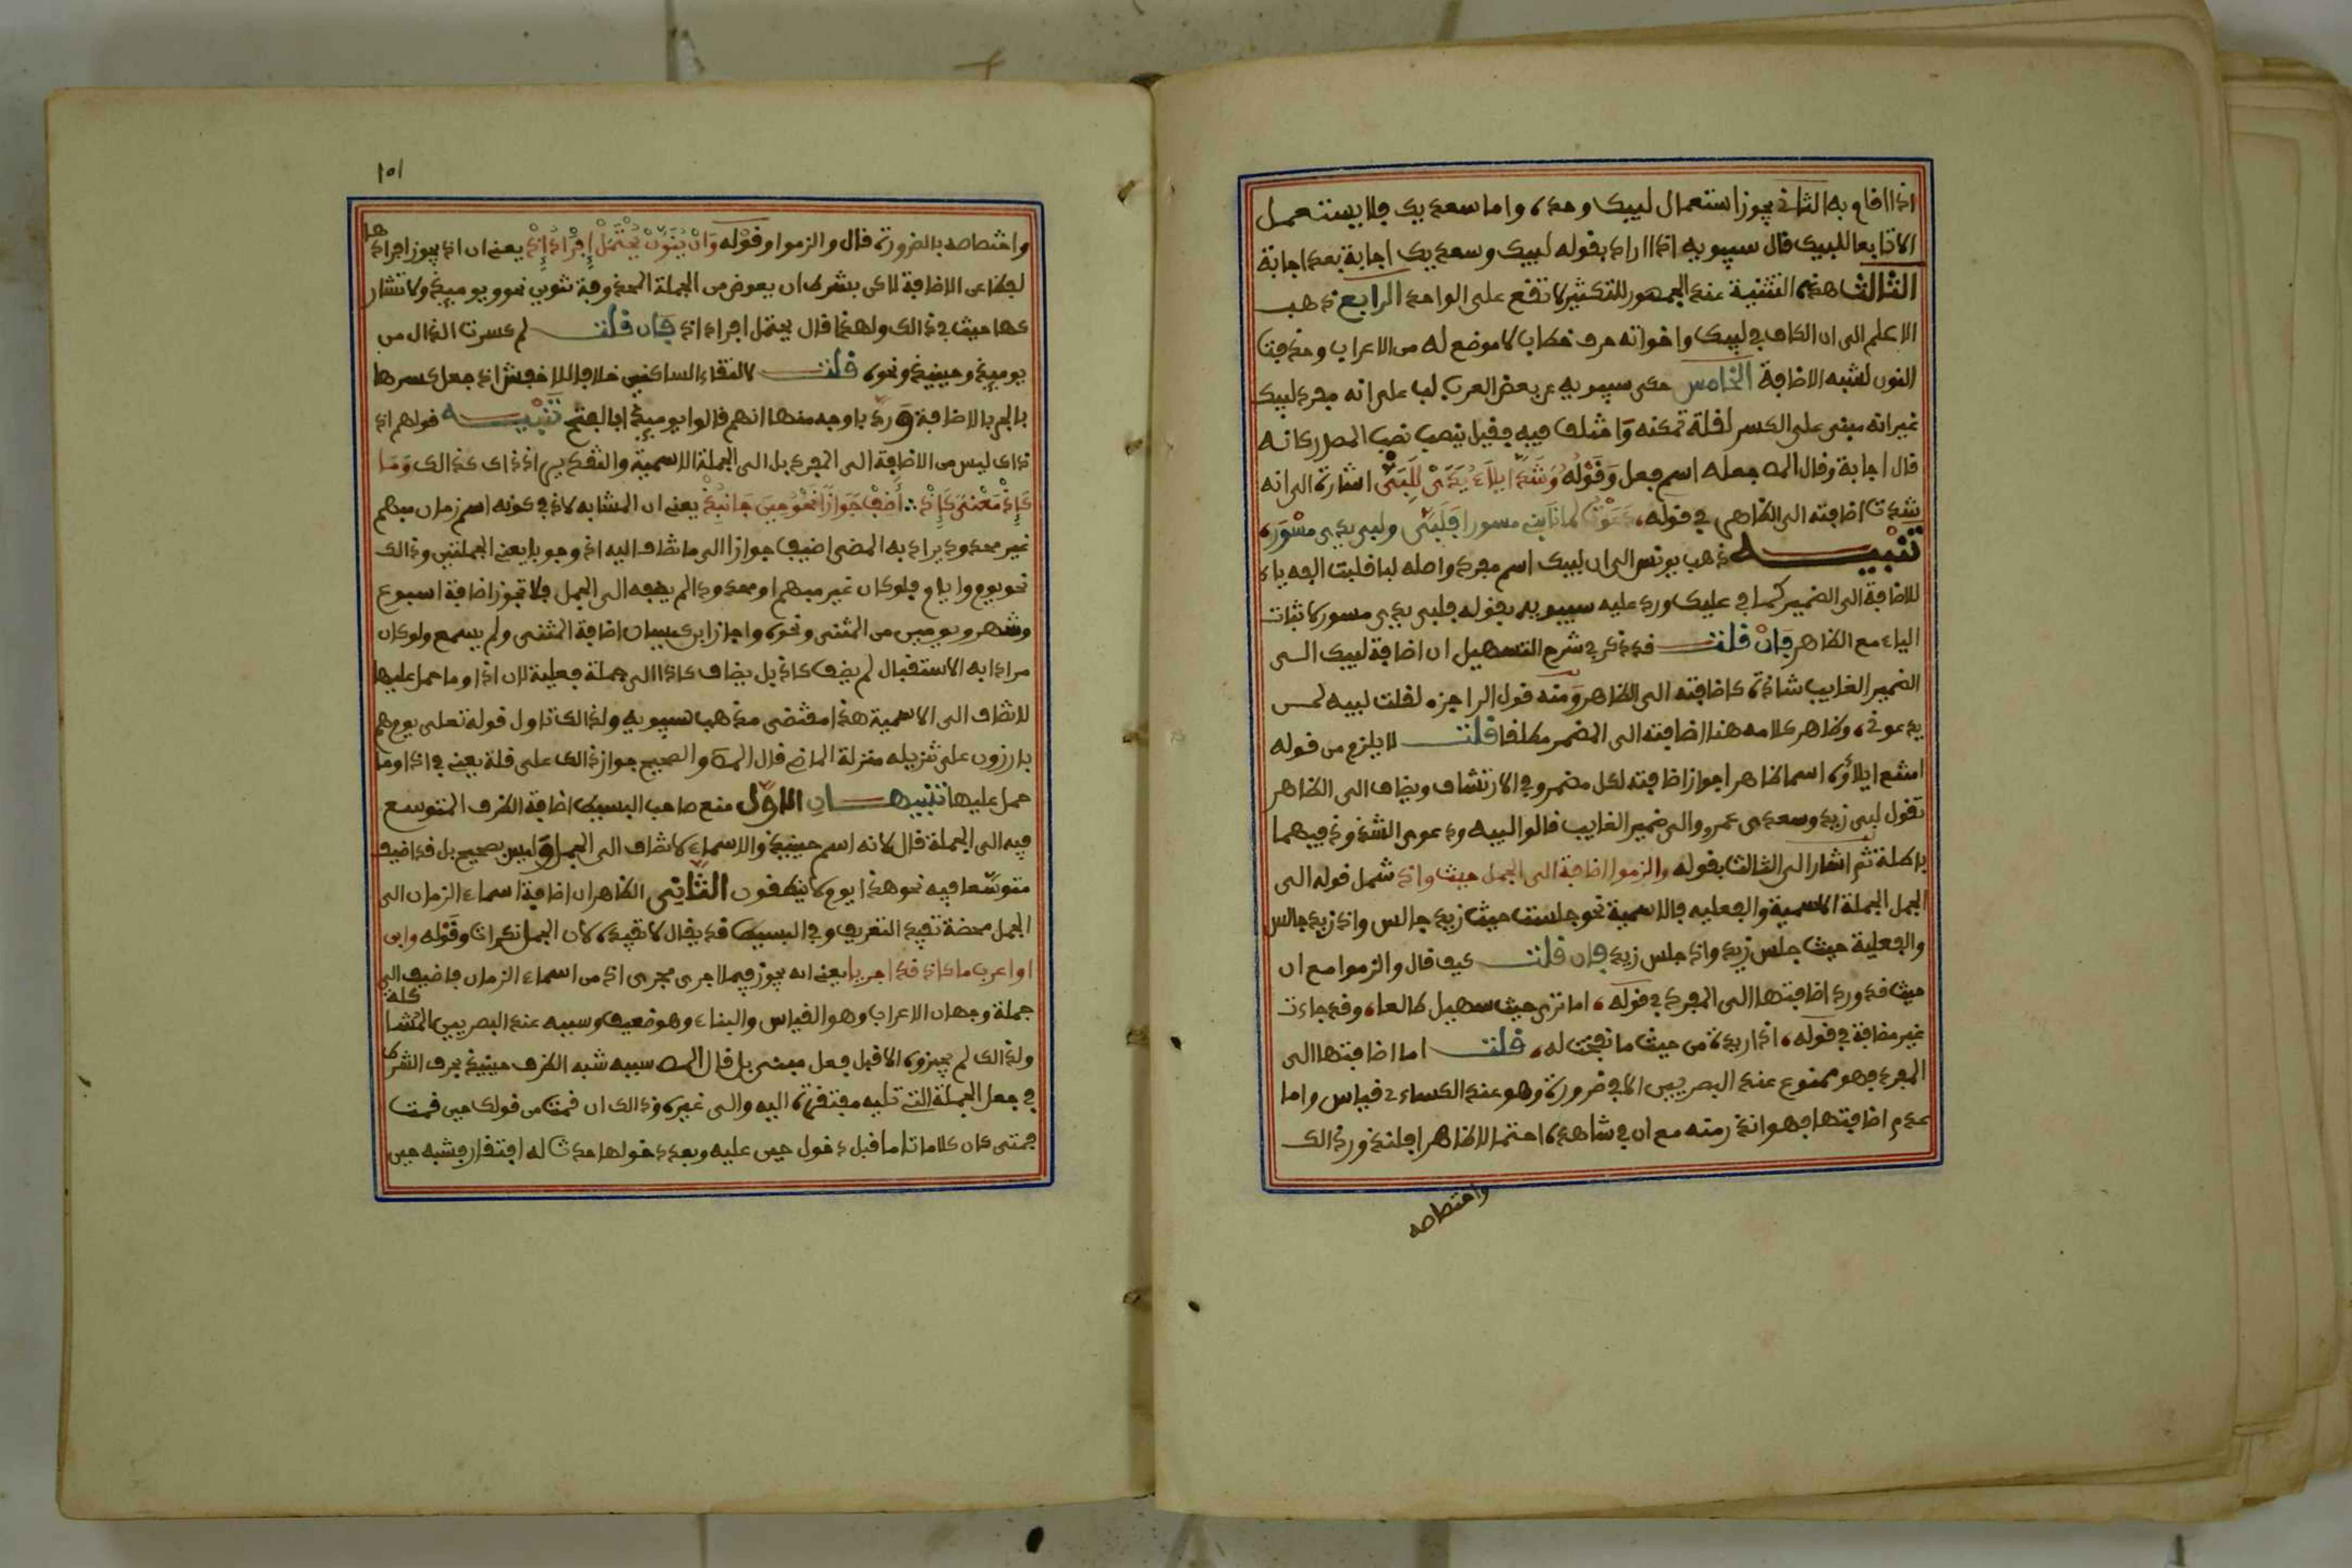 اذا اقام به الثاني يجوز استعمال لبيك وحده، واما سعديك فلا يستعمل
الا تابعا للبيك قال سيبويه اذا اراد بقوله لبيك وسعديك اجابة بعد اجابة
الثالث هذه التثنية عند الجمهور للتكثير لا تقع على الواحد الرابع ذهب
الاعلم الى ان الكاف في لبيك واخواته حرف خطاب لا موضع له من الاعراب وحذفت
النون لشبه الاضافة الخامس حكى سيبويه عن بعض العرب لب على انه مفرد لبيك
غير انه مبني على الكسر لقلة تمكنه واختلف فيه فقيل ينصب نصب المصدر كانه
قال اجابة وقال المص جعله اسم فعل وَقَوْلُه وَشَذَّ ايلاءُ يَدَيْ لِلَبَّيْ اشارة الى انه
شذت اضافته الى الظاهر في قوله، دَعَوْتُ لما نابني مسورا فَلَبَّى ولبي يدي مِسْوَر،
تنبيه ذهب يونس الى ان لبيك اسم مفرد واصله لبا قلبت الفه ياء
للاضافة الى الضمير كما في عليك ورد عليه سيبويه بقوله فلبي يدي مسور لاثبات
الياء مع الظاهر فَإنْ قلتَ قد ذكر في شرح التسهيل ان اضافة لبيك الى
الضمير الغايب شاذة، كاضافته الى الظاهر وَمنه قول الراجز، لقلت لبيه لمن
يدعوني، وظاهر كلامه هنا اضافته الى المضمر مطلقا قلت لا يلزم من قوله
امتنع ايلاؤه اسما ظاهرا جواز اضافته لكل مضمر وفي الارتشاف ويضاف الى الظاهر
تقول لبي زيد وسعدي عمرو والى ضمير الغايب قالوا لبيه ودعوى الشذوذ فيهما
باطلة ثم اشار الى الثالث بقوله والزموا اضافة الى الجمل حيث واذ شمل قوله الى
الجمل الجملة الاسمية والفعليه فالاسمية نحو جلست حيث زيد جالس واذ زيد جالس
والفعلية حيث جلس زيد واذ جلس زيد فإن قلت كيف قال والزموا مع ان
حيث قد ورد اضافتها الى المفرد في قوله، اما ترى حيث سهيل طالعا، وقد جاءت
غير مضافة في قوله، اذا ريدة من حيث ما نفحت له، قلت اما اضافتها الى
المفرد فهو ممنوع عند البصريين الا في ضرورة وهو عند الكساءي قياس واما
عدم اضافتها فهو اندر منه مع ان في شاهده احتمالا ظاهرا فلندور ذالك
واختصاصه
١٥١
واختصاصه بالضرورة قال والزموا وقَوْله وَانْ يُنَوَّنْ يُحْتَمَلْ إفْرادُ إِذْ يعني ان اذ يجوز افرادها
لفظا عن الاضافة لاكن بشرط ان يعوض من الجملة المحذوفة تنوين نحو ويوميذ ولا تشار
كها حيث في ذالك ولهذا قال يحتمل افراد اذ فإن قلت لم كسرت الذال من
يوميذ وحينيذ ونحوه قلت لالتقاء الساكنين خلافا للاخفش اذ جعل كسرها
بالجر بالاضافة ورد باوجه منها انهم قالوا يوميذا بالفتح تنبيه قولهم اذ
ذاك ليس من الاضافة الى المفرد بل الى الجملة الاسمية والتقدير اذ ذاك كذالك وَمَا
كَإِذْ مَعْنًى كَإِذْ ∴ أَضِفْ جَوَازًا نَحْوُ حِينَ جَا نُبِذْ يعني ان المشابه لاذ في كونه اسم زمان مبهم
غير محدود يراد به المضي اضيف جوازا الى ما تضاف اليه اذ وجوبا يعني الجملتين وذالك
نحو يوم وايام فلو كان غير مبهم او محدودا لم يضف الى الجمل فلا تجوز اضافة اسبوع
وشهر ويومين من المثنى ونحوه واجاز ابن كيسان اضافة المثنى ولم يسمع ولو كان
مرادا به الاستقبال لم يضف كاذ بل يضاف كاذا الى جملة فعلية لان اذا وما حمل عليها
لا تضاف الى الاسمية هذا مقتضى مذهب سيبويه ولذالك تاول قوله تعلى يوم هم
بارزون على تنزيله منزلة الماضي قال المص والصحيح جواز ذالك على قلة يعني في اذا وما
حمل عليها تنبيهان الاول منع صاحب البسيط اضافة الظرف المتوسع
فيه الى الجملة قال لانه اسم حينيذ والاسماء لا تضاف الى الجمل وليس بصحيح بل قد اضيف
متوسعا فيه نحو هذا يوم لا ينطقون الثاني الظاهر ان اضافة اسماء الزمان الى
الجمل محضة تفيد التعريف وفي البسيط قد يقال لا تفيده لان الجمل نكرات وَقَوْله وابن
او اعرب ما كاذ قد اجريا يعني انه يجوز فيما اجري مجرى اذ من اسماء الزمان فاضيف الى
جملة وجهان الاعراب وهو القياس والبناء وهو ضعيف وسببه عند البصريين المشاكلة
ولذالك لم يجيزوه الا قبل فعل مبني بل قال المص سببه شبه الظرف حينيذ بحرف الشرط
في جعل الجملة التي تليه مفتقرة، اليه والى غيره وذالك ان قمت من قولك حين قمت
قمتى كان كلاما تاما قبل دخول حين عليه وبعد دخولها حدث له افتقار فشبه حين